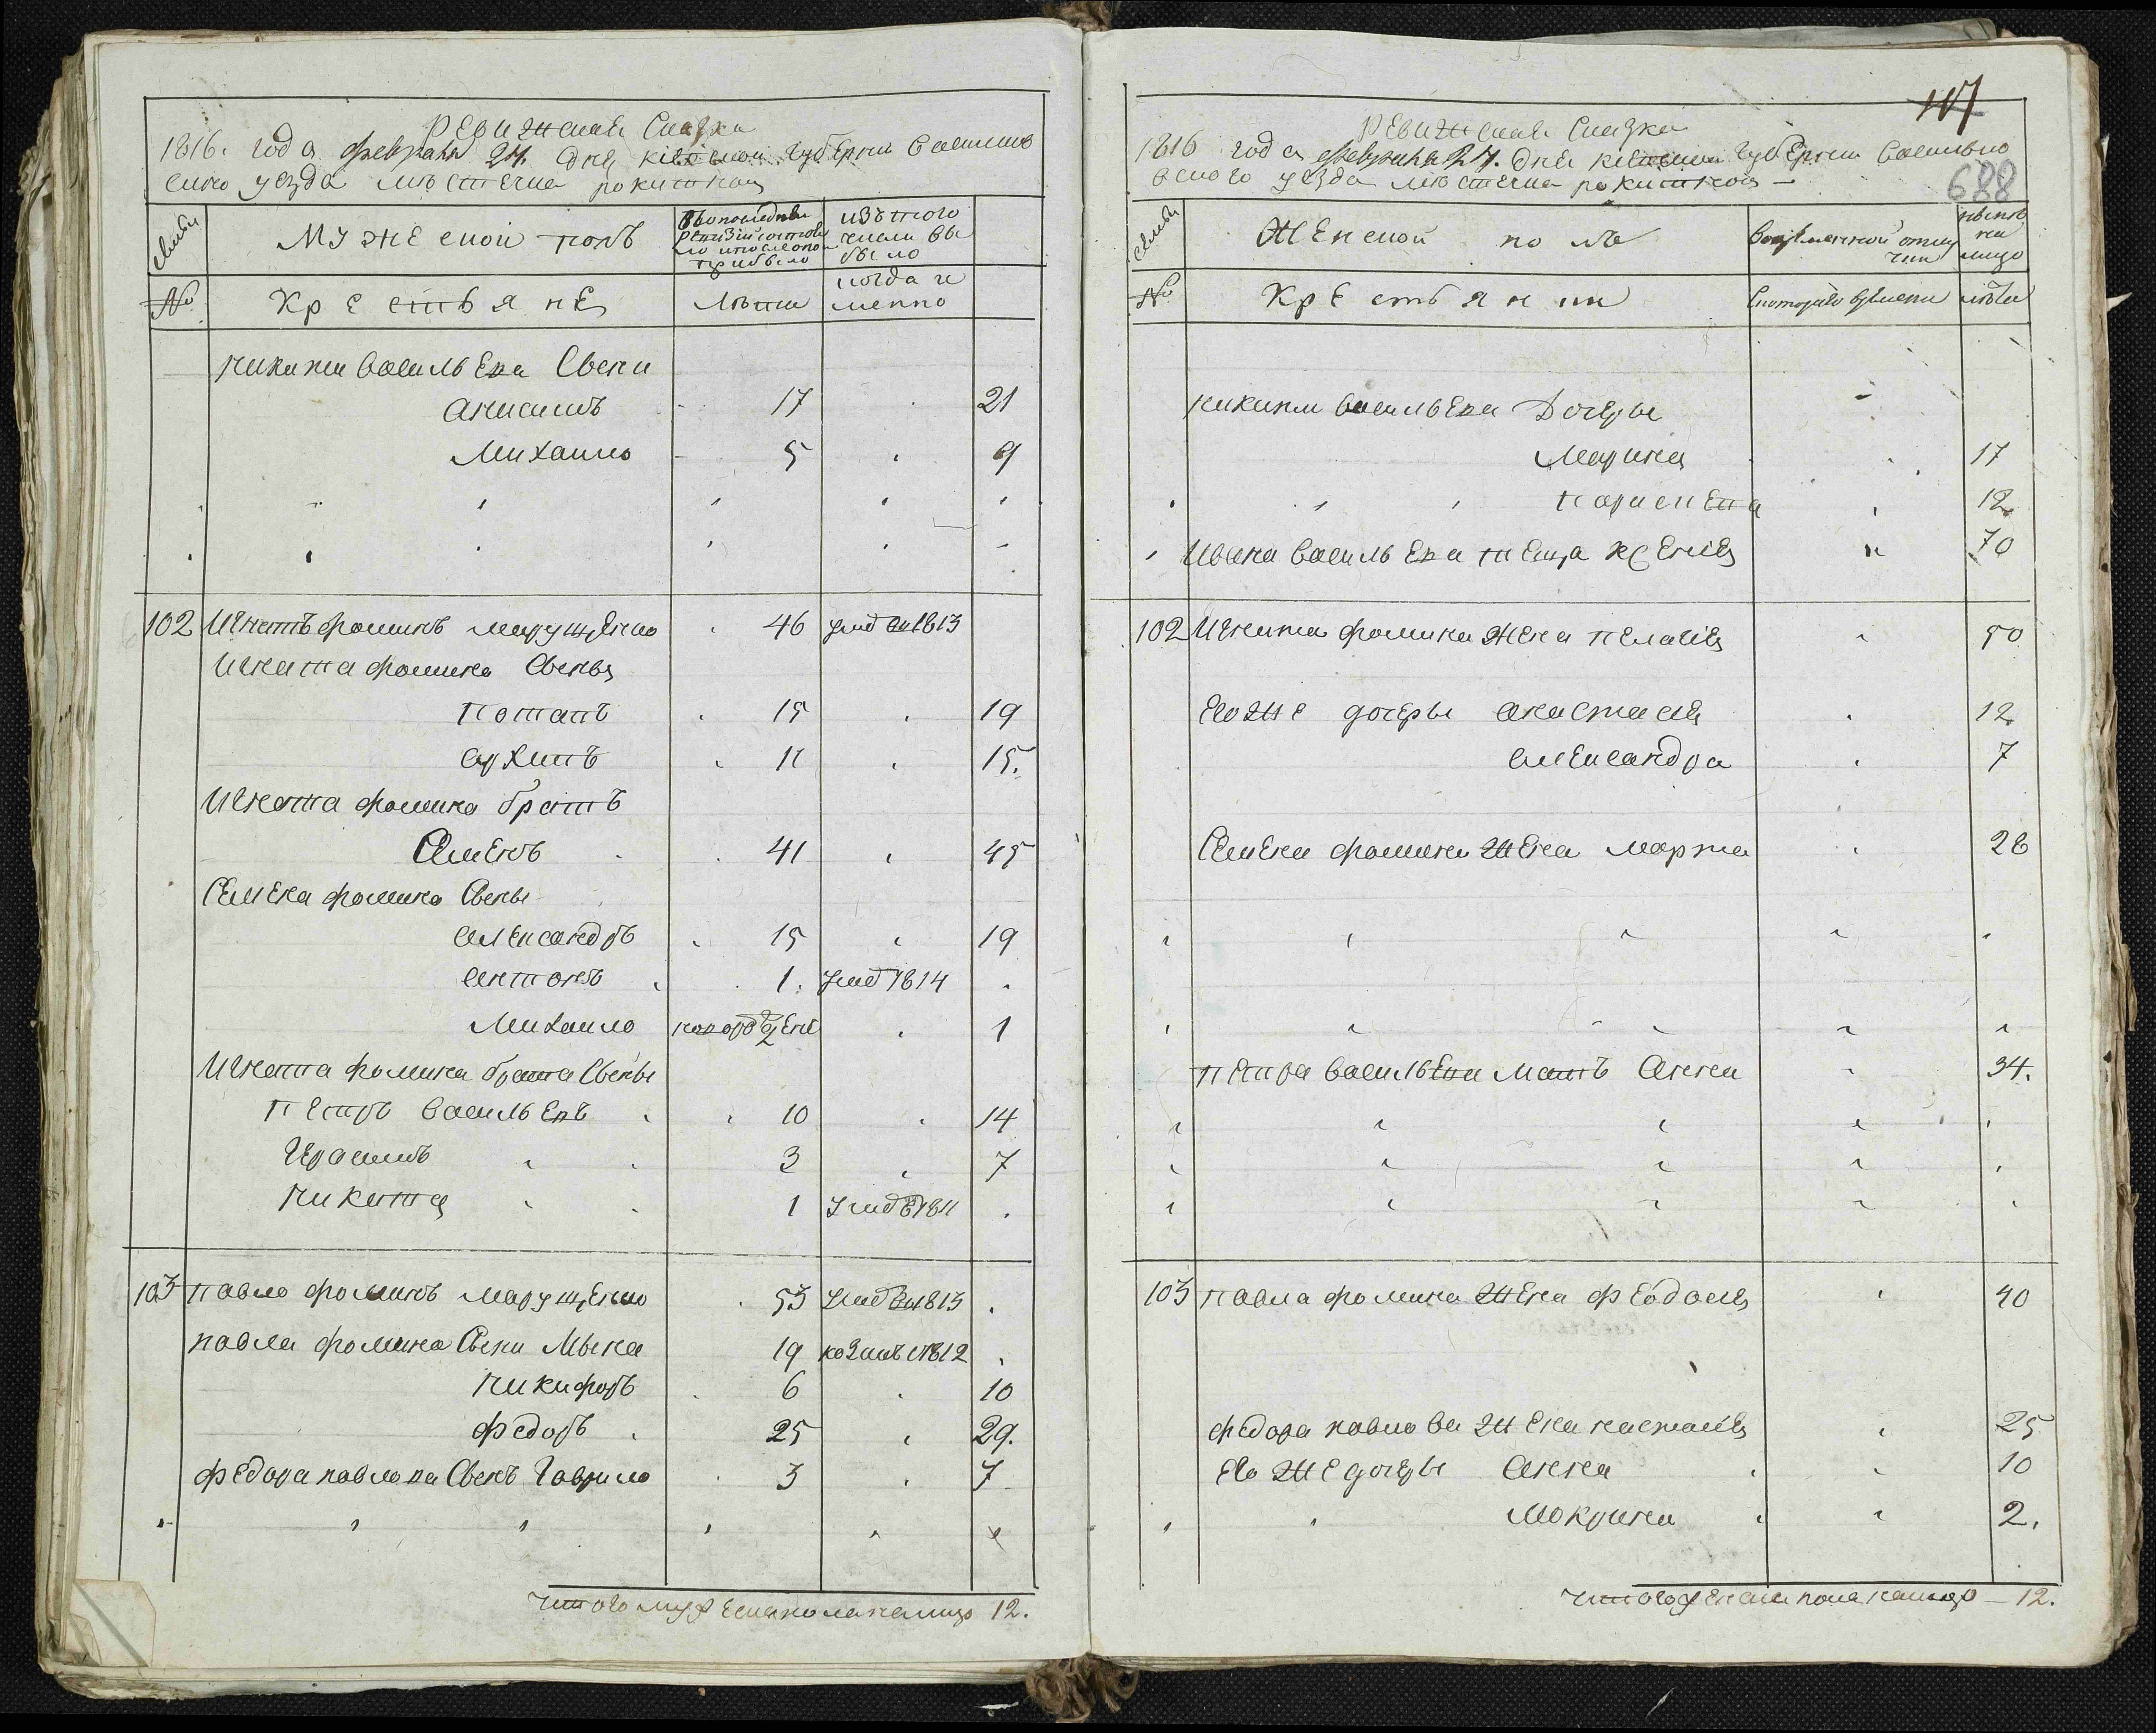 Ревижская Сказка
1816. года февраля 24. дня киевской губернии василько
вского уезда местечка рокитной
Семьи
Мужеской полъ
Въ последней ревизии состояло и после оной прибыло
изъ того числа выбыло
№
Крестьяне
Лета
когда именно
никиты василЬева Сыны
анисимъ 17 21
Михайло 5 9
102 Игнатъ фоминъ марущенко 46 умре въ 1813
Игната фомина Сыны
потапъ 15 19
архипъ 11 15.
Игната фомина братъ
Семенъ 41 45
Семена фомина Сыны
александръ 15 19
антонъ 1. умре 1814
Михайло новорожденъ 1
Игната фомина брата Сыны
петръ васильевъ 10 14
Герасимъ 3 7
никита 1 умре 1811
103 павло фоминъ марущенко 53 умре въ 1813
павла фомина Сыны Ивана 19 1812
никифоръ 6 10
федоръ 25 29.
федора павлова Сынъ Гаврило 3 7
Итого мужеска пола налицо 12.
117
Ревижская Сказка
1816 года февраля 24. дня киевской губернии василько
вского уезда местечка рокитной
688
Семьи
Женской полъ
Во временной отлучки
ныне на лицо
№
Крестьянки
Скоторого времени
лета
никиты васильева Дочеры
Марина 17
параскева 12
Ивана васильева теща ксения 70
102 Игната фомина жена пелагия 50
Его же дочеры анастасия 12
александра 7
Семена фомина жена марта 28
петра васильева мать анна 34.
103 павла фомина жена феодосия 40
федора павлова жена настасия 25
Его же дочеры анна 10
мокрина 2.
Итого женска пола налицо — 12.